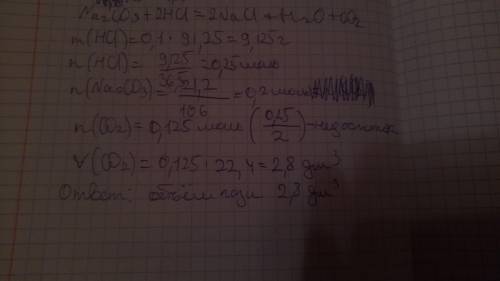 Na2CO3+2HCl=2NaCl+H2O+CO2
m(HCl)=0,1·91,25=9,125г
n(HCl)= 9,125/36,5=0,25моль
n(Na2CO3)= 21,2/106 =0,2моль
n(CO2)=0,125моль (0,25/2)-недостаток
V(CO2)=0,125·22,4=2,8 дм3
Ответ: объём газа 2,8 дм3